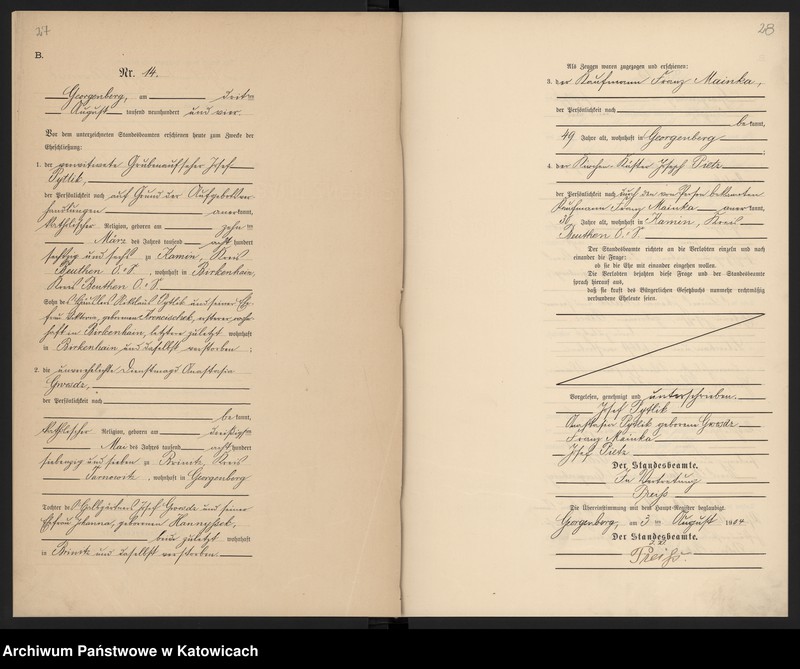 27
B.
Nr. 14.
Georgenberg, am dritten
August tausend neunhundert und vier.
Vor dem unterzeichneten Standesbeamten erschienen heute zum Zwecke der
Eheschließung:
1. der verwitwete Grubenaufseher Josef
Pytlik,
der Persönlichkeit nach auf Grund der Aufgebotsver-
handlungen anerkannt,
katholischer Religion, geboren am zehnten
März des Jahres tausend achthundert
sechzig und sechs zu Kamin, Kreis
Beuthen O.-S., wohnhaft in Birkenhain,
Kreis Beuthen O.-S.
Sohn des Häuslers Niklaus Pytlik und seiner Ehe-
frau Viktoria, geborenen Francischek, ersterer wohn-
haft in Birkenhain, letztere zuletzt wohnhaft
in Birkenhain und daselbst verstorben;
2. die unverehelichte Dienstmagd Anastasia
Gwosdz,
der Persönlichkeit nach
bekannt,
katholischer Religion, geboren am dreißigsten
Mai des Jahres tausend achthundert
siebenzig und sieben zu Brinitz, Kreis
Tarnowitz, wohnhaft in Georgenberg
Tochter des Josef Gwosdz und seiner
Ehefrau Johanna, geborenen Hannyssek,
beide zuletzt wohnhaft
in Brinitz und daselbst verstorben.
28
Als Zeugen waren zugezogen und erschienen:
3. der Kaufmann Franz Mainka,
der Persönlichkeit nach
bekannt,
49 Jahre alt, wohnhaft in Georgenberg
;
4. der Kirchen-Küster Josef Pietz
der Persönlichkeit nach durch den von Person bekannten
Kaufmann Franz Mainka anerkannt,
36 Jahre alt, wohnhaft in Kamin, Kreis
Beuthen O.-S.
Der Standesbeamte richtete an die Verlobten einzeln und nach
einander die Frage:
ob sie die Ehe mit einander eingehen wollen.
Die Verlobten bejahten diese Frage und der Standesbeamte
sprach hierauf aus,
daß sie kraft des Bürgerlichen Gesetzbuchs nunmehr rechtmäßig
verbundene Eheleute seien.
Vorgelesen, genehmigt und unterschrieben.
Josef Pytlik
Anastasia Pytlik geborene Gwosdz
Franz Mainka
Josef Pietz
Der Standesbeamte.
In Vertretung
Preiss
Die Übereinstimmung mit dem Haupt-Register beglaubigt.
Georgenberg, am 3ten August 1904
Der Standesbeamte.
Preiss
Archiwum Państwowe w Katowicach